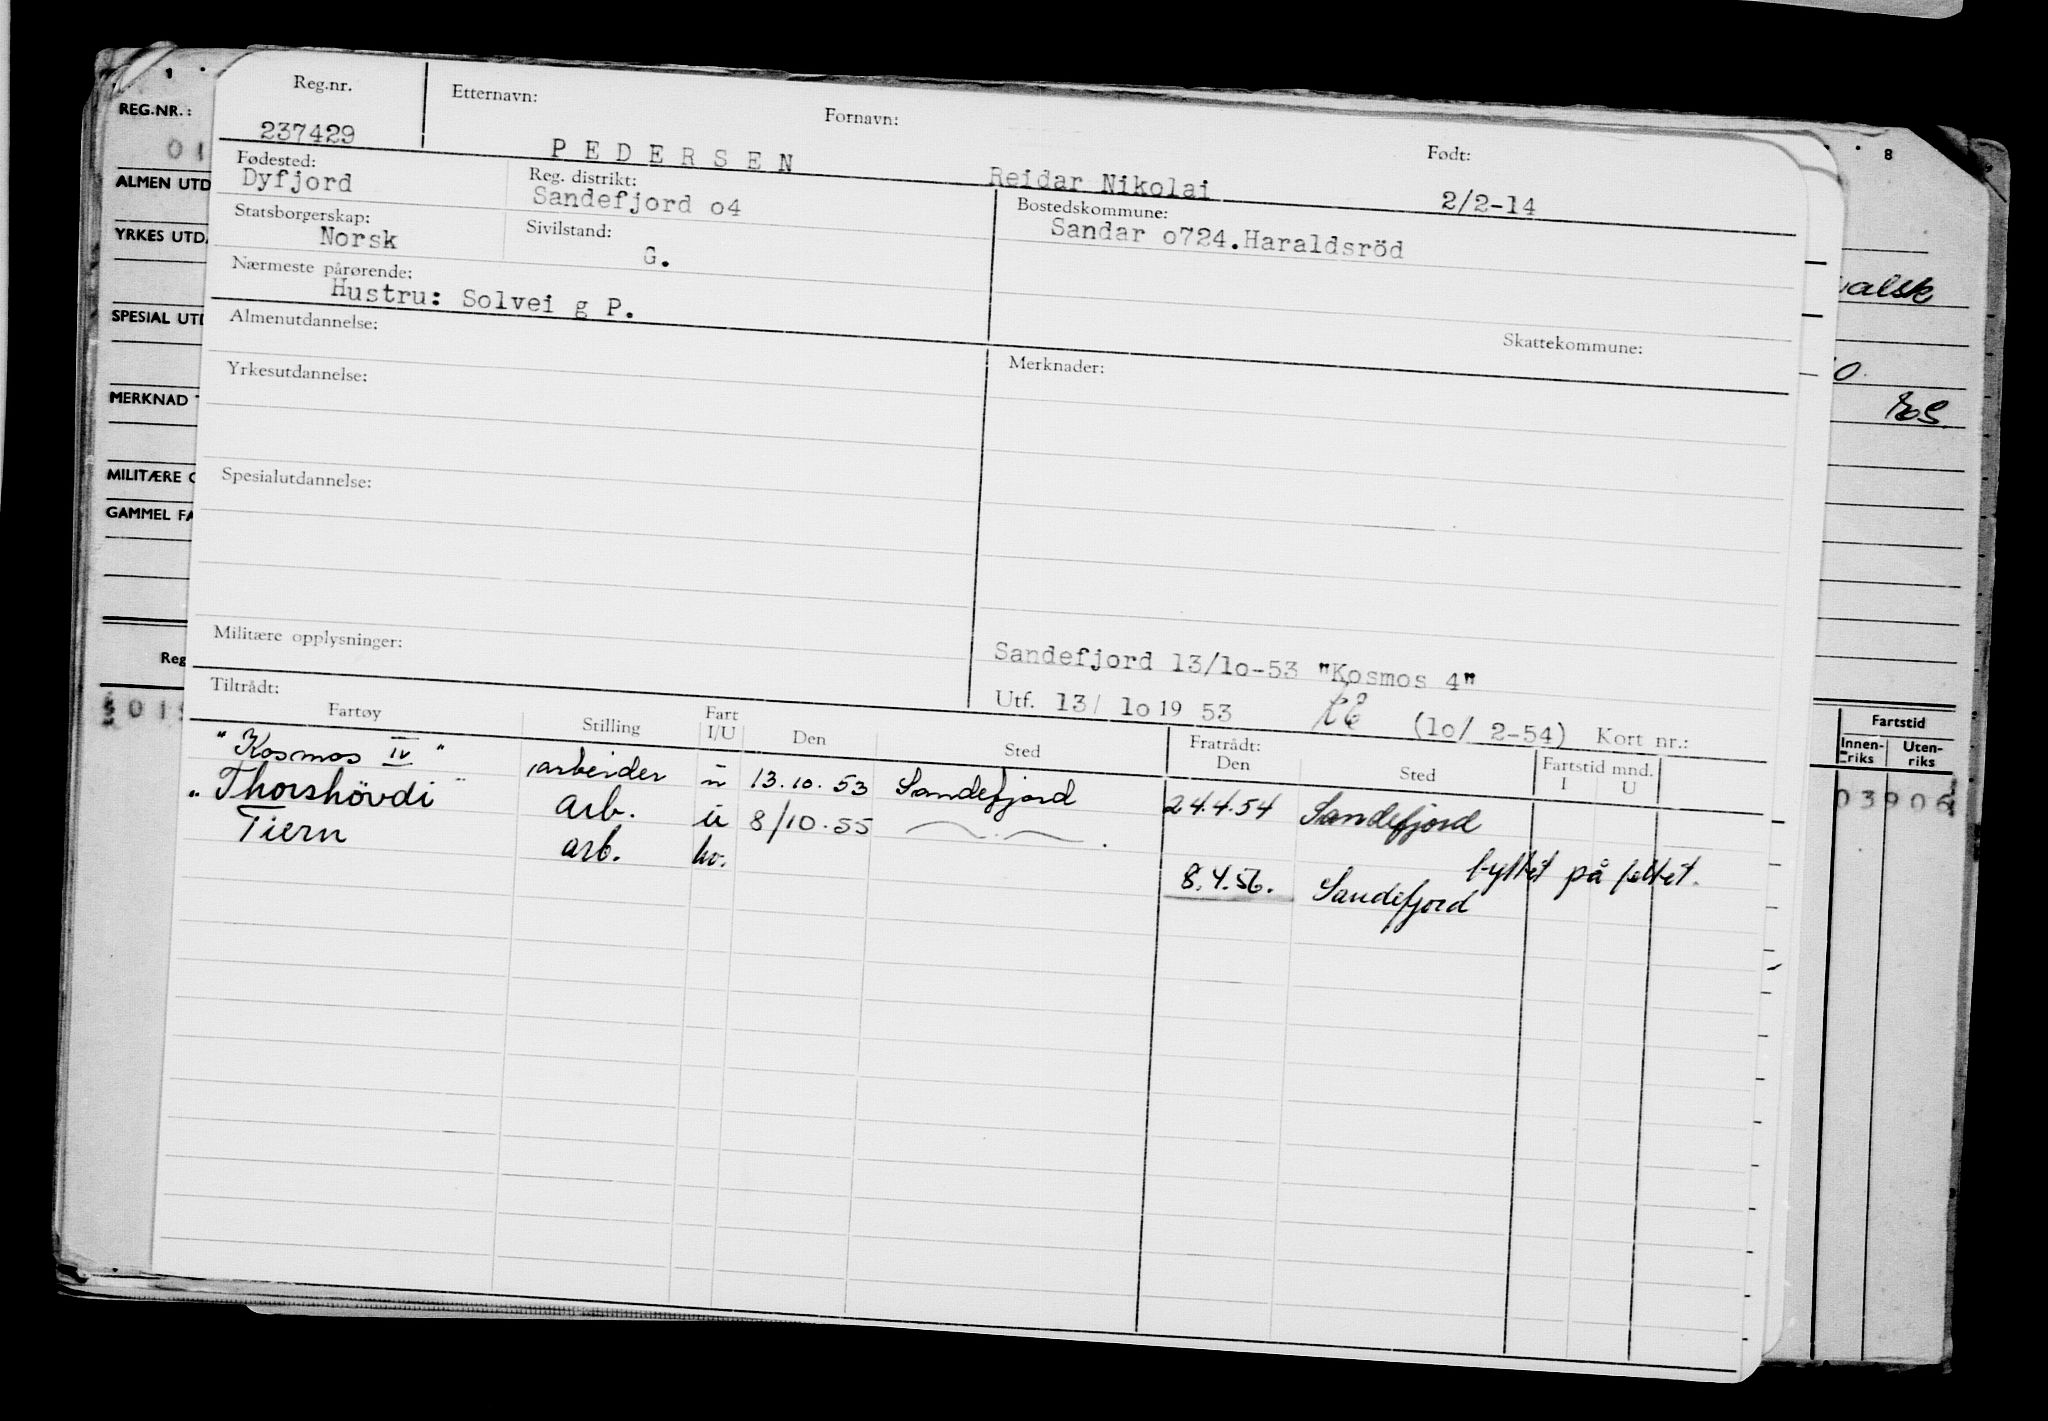 REG.NR.:
ALMEN UTD
YRKES UTD
SPESIAL UTD
MERKNAD
MILITÆRE
GAMMEL FA
Reg
Reg.nr. Etternavn: Fornavn: Født:
237429 PEDERSEN Reidar Nikolai 2/2-14
Fødested: Reg. distrikt: Bostedskommune:
Dyfjord Sandefjord o4 Sandar o724.Haraldsröd
Statsborgerskap: Sivilstand:
Norsk G.
Nærmeste pårørende:
Hustru: Solvei g P.
Skattekommune:
Almenutdannelse: Merknader:
Yrkesutdannelse:
Spesialutdannelse:
Militære opplysninger:
Sandefjord 13/lo-53 "Kosmos 4"
Utf. 13/ lo 19 53 (lo/ 2-54) Kort nr.:
Tiltrådt: Fratrådt:
Fartøy Stilling Fart I/U Den Sted Den Sted Fartstid mnd. I U
"Kosmos IV" arbeider u 13.10.53 Sandefjord 24.4.54 Sandefjord
"Thorshövdi" arb. u 8/10.55 byttet på feltet.
Tiern arb. hv. 8.4.56. Sandefjord
8
Fartstid
Innen-riks Uten-riks
03906